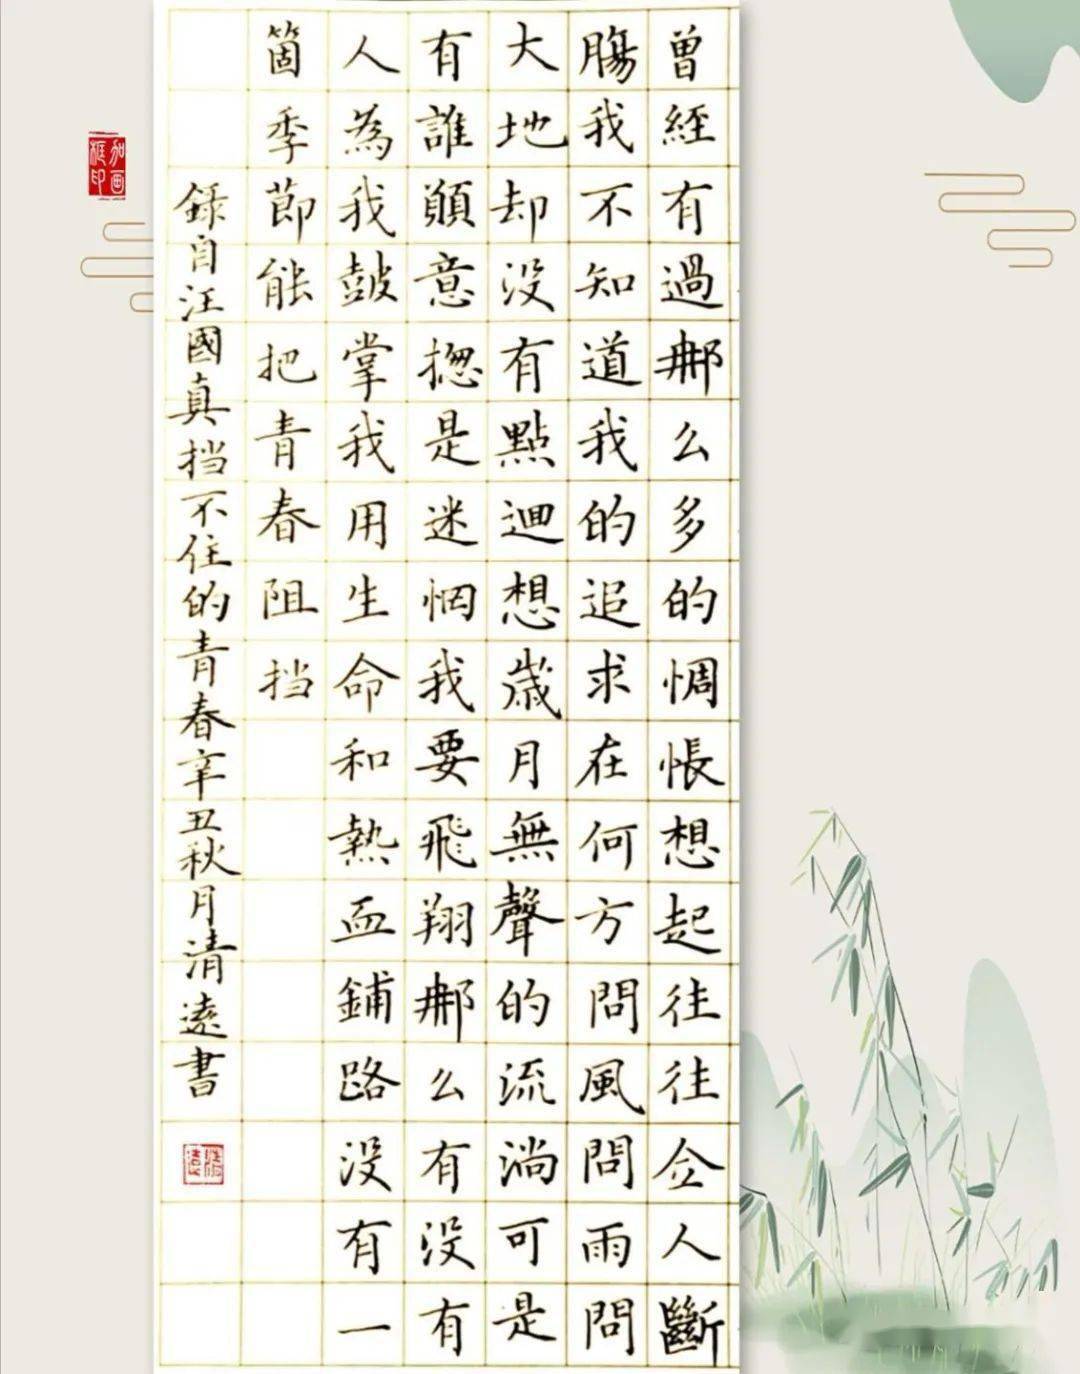 曾經有過那么多的惆悵想起往往令人斷
腸我不知道我的追求在何方問風問雨問
大地却没有點迴想歲月無聲的流淌可是
有誰願意揔是迷惘我要飛翔那么有没有
人為我鼓掌我用生命和熱血鋪路没有一
箇季節能把青春阻挡
錄自汪國真挡不住的青春辛丑秋月清遠書
加画框印